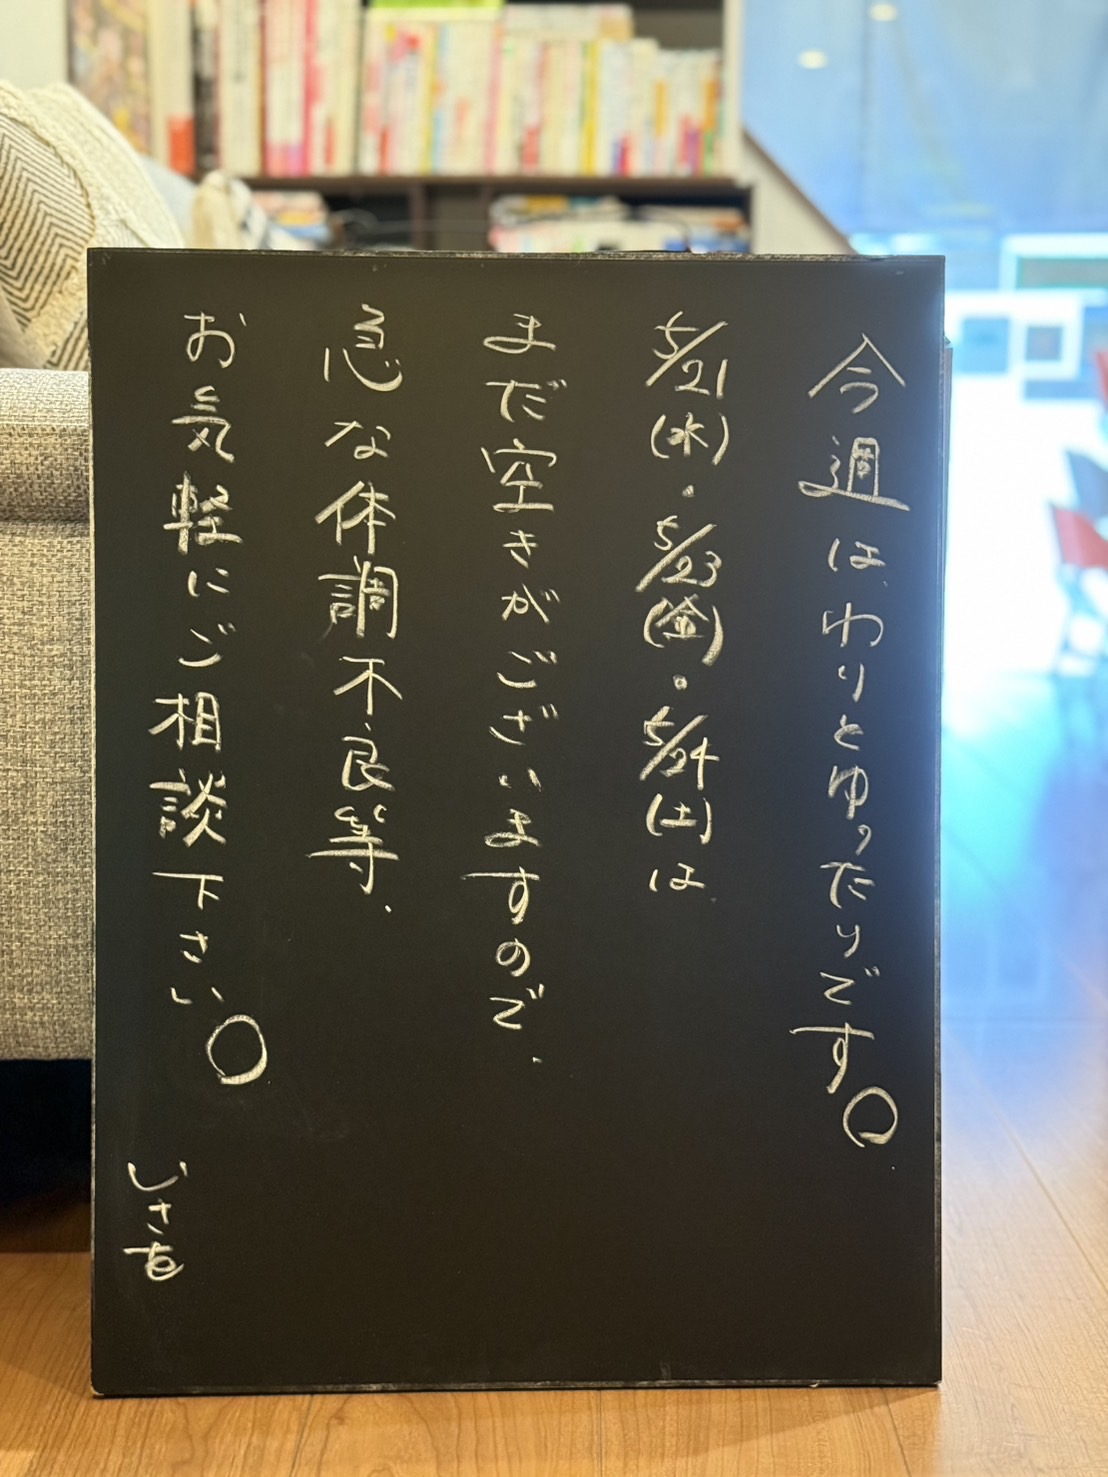 今週は、わりとゆったりです。
5/21(水)・5/23(金)・5/24(土)は
まだ空きがございますので、
急な体調不良等、
お気軽にご相談下さい。